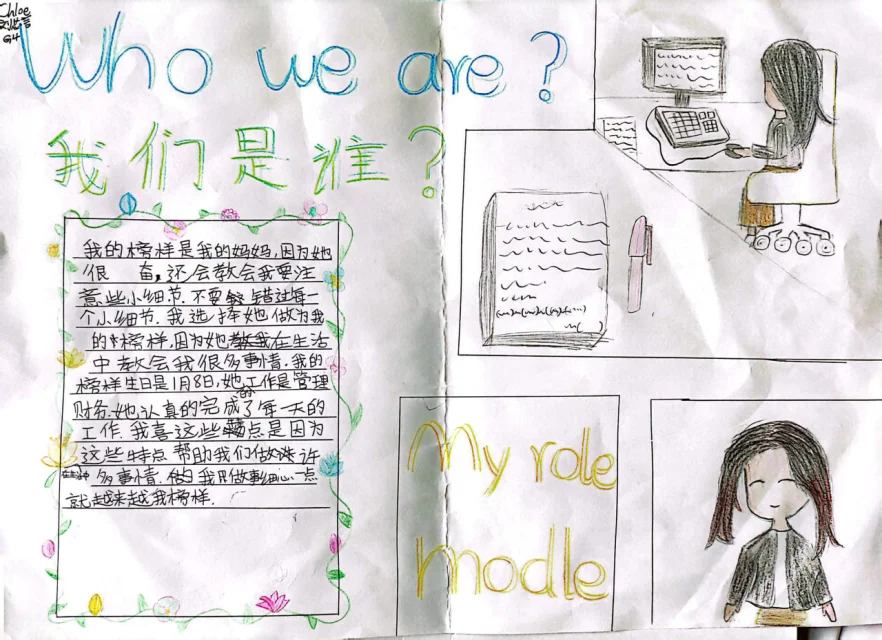 Chloe
G4
Who we are?
我们是谁？
我的榜样是我的妈妈,因为她
很 奋,还会教会我要注
意些小细节.不要 错过每一
个小细节.我选择她做为我
的 榜样,因为她教我在生活
中教会我很多事情.我的
榜样生日是1月8日,她工作是管理
财务.她认真的完成了每一天的
工作.我喜这些 点是因为
这些特点帮助我们做 许
多事情. 我用做事细心一点
就越来越我榜样.
My role
modle